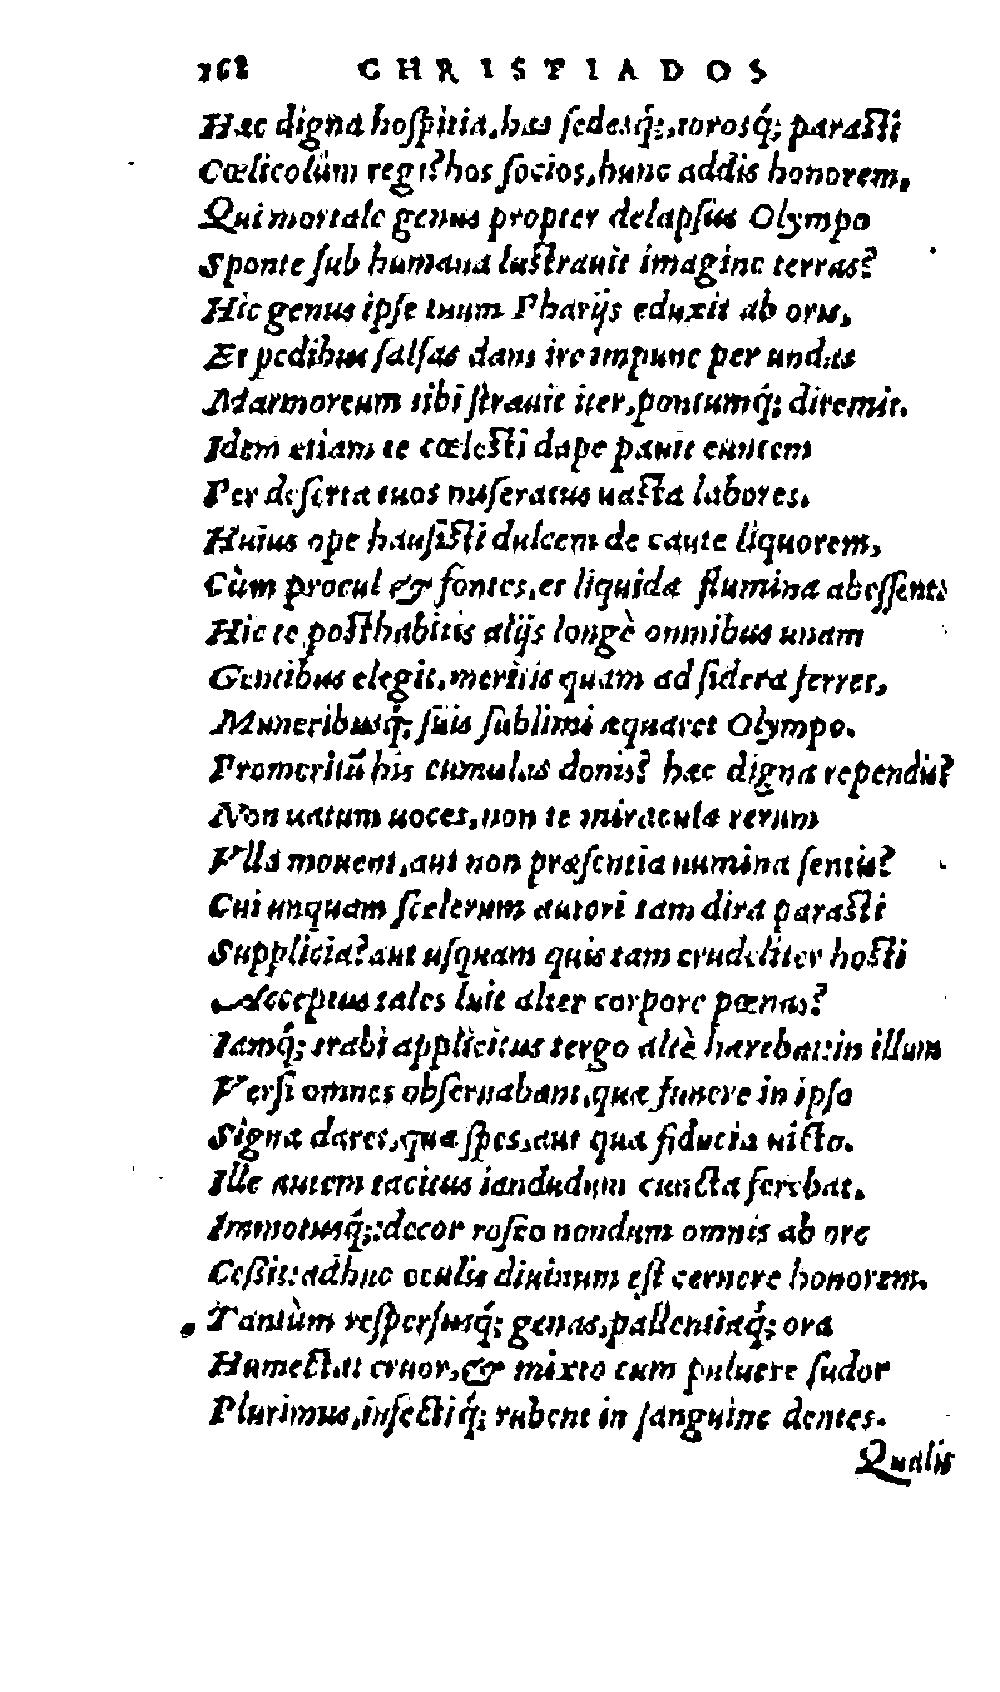 168 CHRISTIADOS
Hæc digna hospitia, has sedesq́;, torosq́; parasti
Cœlicolûm regi? hos socios, hunc addis honorem,
Qui mortale genus propter delapsus Olympo
Sponte sub humana lustrauit imagine terras?
Hic genus ipse tuum Pharijs eduxit ab oris,
Et pedibus salsas dans ire impune per undas
Marmoreum tibi strauit iter, pontumq́; diremit.
Idem etiam te cœlesti dape pauit euntem
Per deserta tuos miseratus uasta labores.
Huius ope hausisti dulcem de caute liquorem,
Cùm procul & fontes, et liquida flumina abessent.
Hic te posthabitis alijs longè omnibus unam
Gentibus elegit, meritis quam ad sidera ferret,
Muneribusq́; suis sublimi æquaret Olympo.
Promeritũ his cumulas donis? hæc digna rependis?
Non uatum uoces, non te miracula rerum
Vlla mouent, aut non præsentia numina sentis?
Cui unquam scelerum autori tam dira parasti
Supplicia? aut usquam quis tam crudeliter hosti
Acceptus tales luit alter corpore pœnas?
Iamq́; trabi applicitus tergo altè hærebat: in illum
Versi omnes obseruabant, quæ funere in ipso
Signa daret, quæ spes, aut quæ fiducia uicto.
Ille autem tacitus iandudum cuncta ferebat.
Immotusq́;: decor roseo nondum omnis ab ore
Cessit: adhuc oculis diuinum est cernere honorem.
Tantùm respersusq́; genas, pallentiaq́; ora
Humectat cruor, & mixto cum puluere sudor
Plurimus, infectiq́; rubent in sanguine dentes.
Qualis